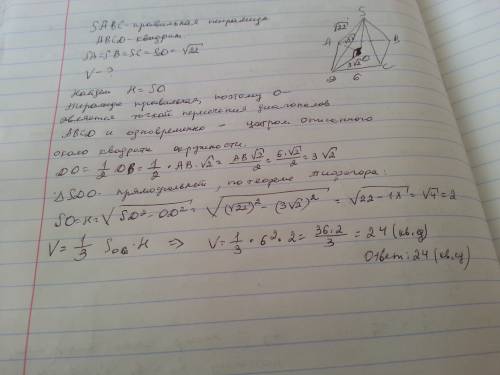 SABC-правильная пирамида
ABCD-квадрат
SA=SB=SC=SD=√22
V-?
Найдем H=SO.
Пирамида правильная, поэтому O-
является точкой пересечения диагоналей
ABCD и одновременно - центром описанного
около квадрата окружности.
DO = 1/2 DB = 1/2 · AB·√2 = AB√2/2 = 6·√2/2 = 3√2
ΔSDO- прямоугольный, по теореме Пифагора:
SO=H=√(SD²-OD²) = √((√22)²-(3√2)²) = √(22-18) = √4 = 2
V = 1/3 S · H => V = 1/3 · 6² · 2 = 36·2/3 = 24 (кв.ед)
Ответ: 24 (кв.ед)
S
√22
A
B
√22
O
3√2
D
6
C